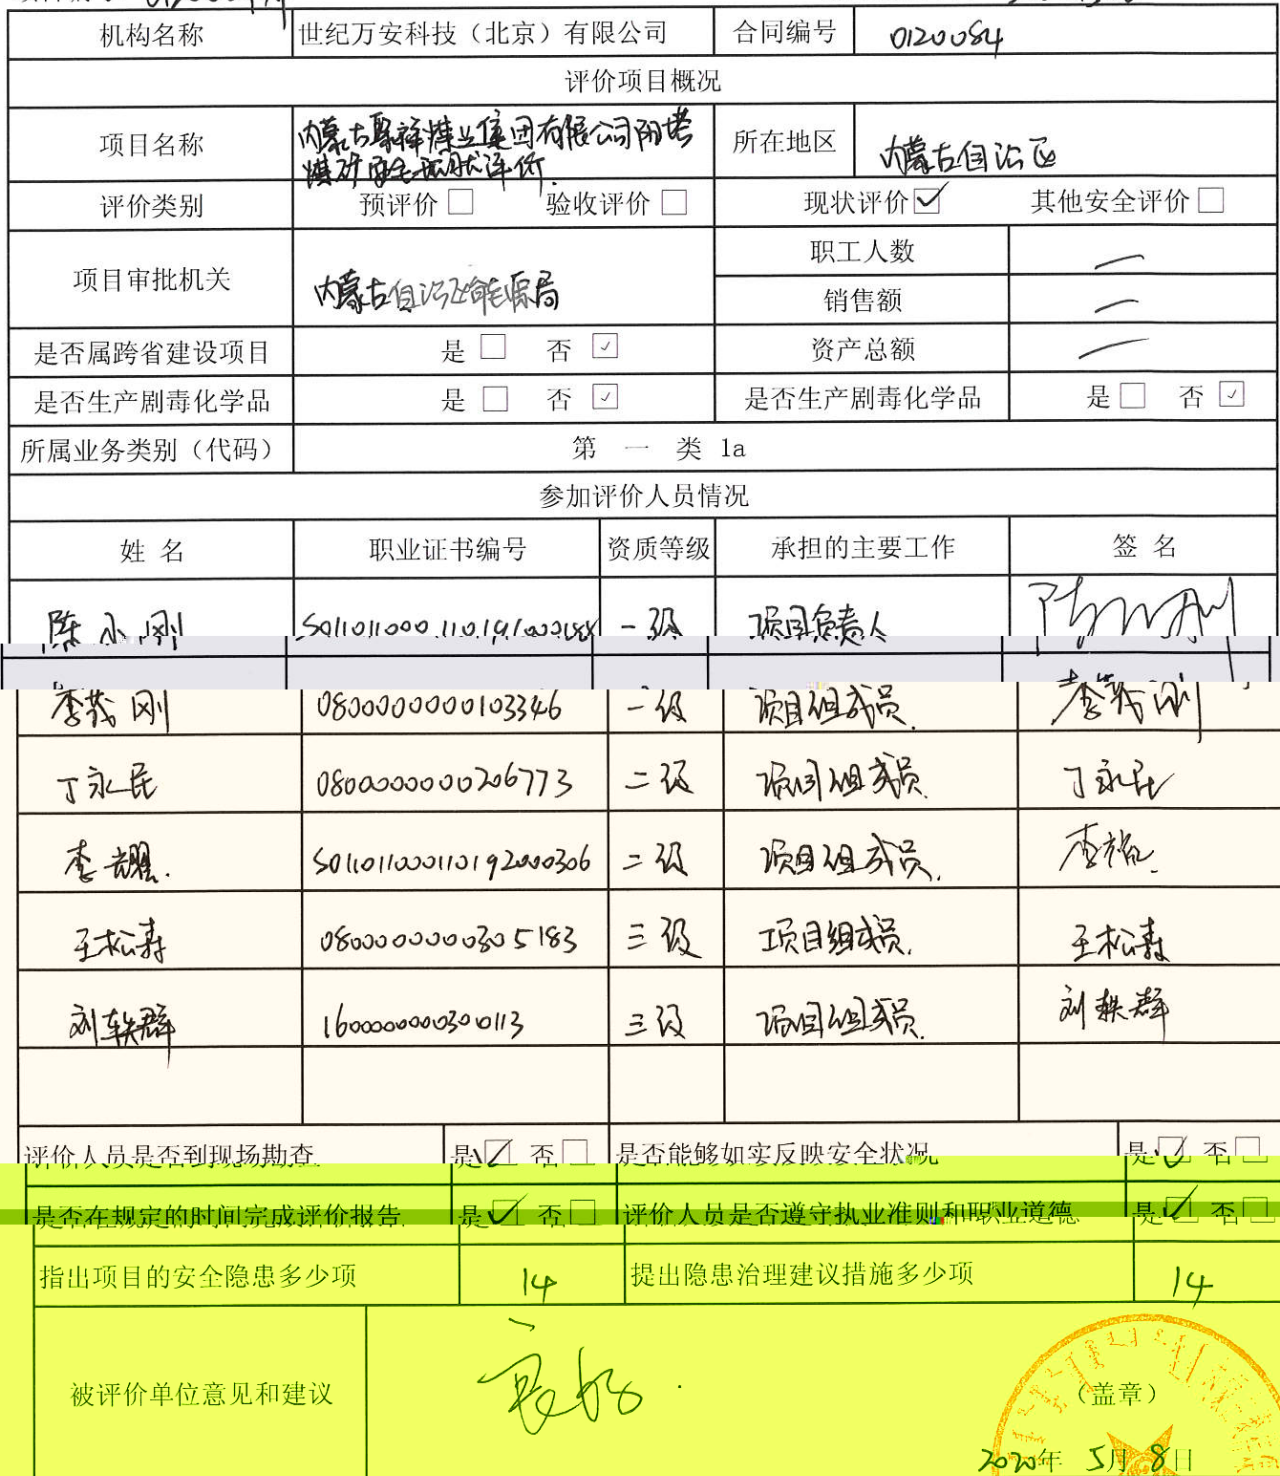 机构名称 世纪万安科技（北京）有限公司 合同编号 0120084
评价项目概况
项目名称 内蒙古聚祥煤业集团有限公司阳塔 所在地区 内蒙古自治区
煤矿安全现状评价
评价类别 预评价□ 验收评价□ 现状评价☑ 其他安全评价□
项目审批机关 内蒙古自治区能源局 职工人数 —
销售额 —
是否属跨省建设项目 是□ 否☑ 资产总额 —
是否生产剧毒化学品 是□ 否☑ 是否生产剧毒化学品 是□ 否☑
所属业务类别（代码） 第一类 1a
参加评价人员情况
姓名 职业证书编号 资质等级 承担的主要工作 签名
陈小刚 一级 项目负责人 陈小刚
李茂刚 0800000000103346 一级 项目组成员 李茂刚
丁永民 0800000000206773 二级 项目组成员 丁永民
李耀 S011011000110192000306 二级 项目组成员 李耀
王松寿 0800000000305183 三级 项目组成员 王松寿
刘轶群 1600000000300113 三级 项目组成员 刘轶群
评价人员是否到现场勘查 是☑ 否□ 是否能够如实反映安全状况 是☑ 否□
是否在规定的时间完成评价报告 是☑ 否□ 评价人员是否遵守执业准则和职业道德 是☑ 否□
指出项目的安全隐患多少项 14 提出隐患治理建议措施多少项 14
被评价单位意见和建议 良好 （盖章）
2020年 5月 8日